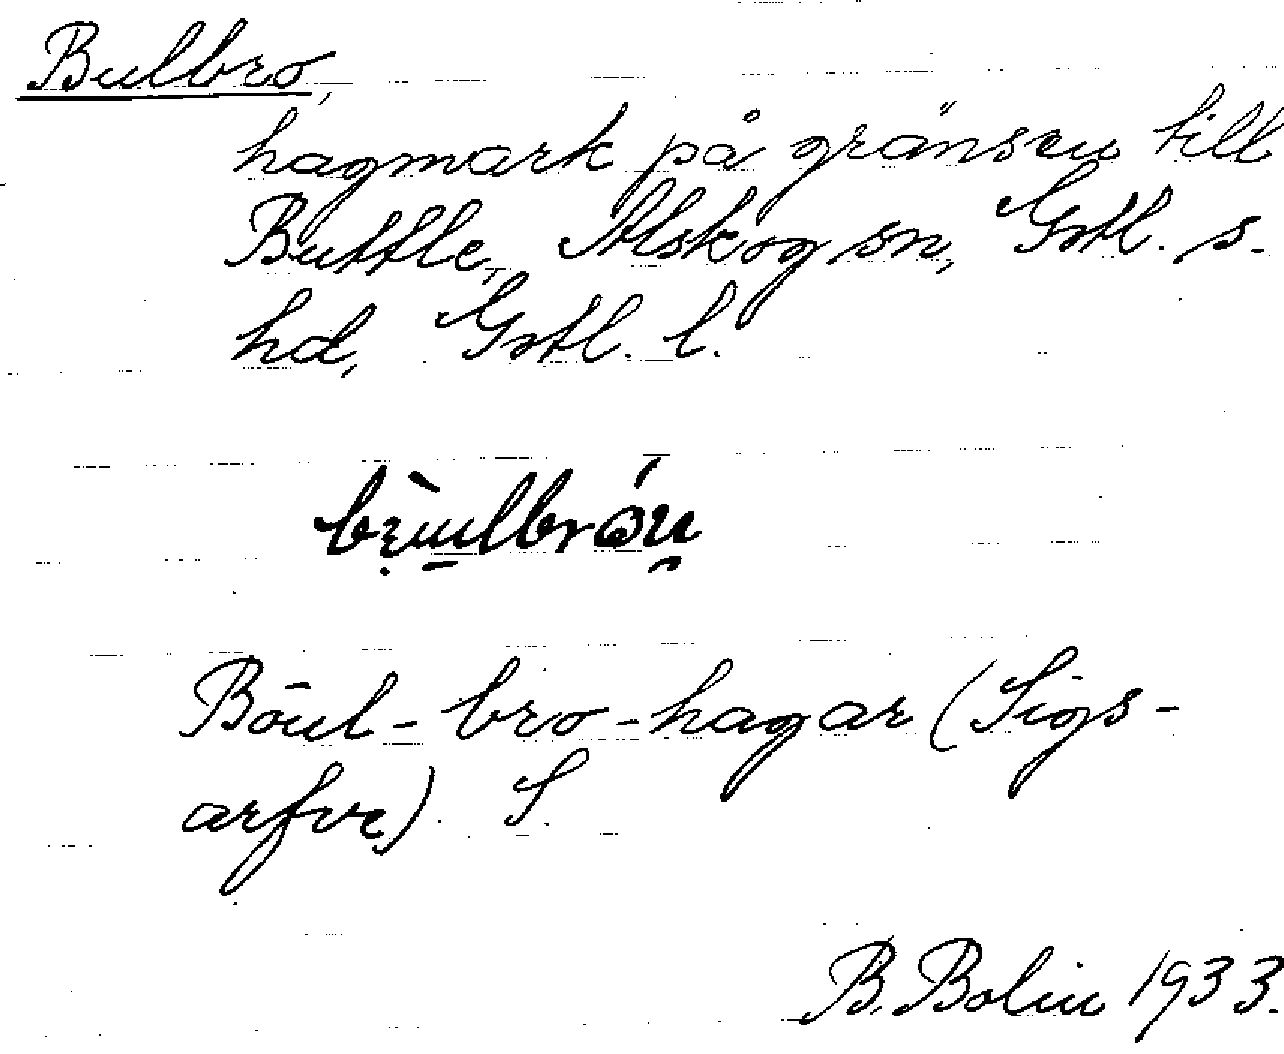 Bulbro,
hagmark på gränsen till
Buttle, Alskog sn, Gotl. s.
hd, Gotl. l.
Bōul-bro-hagar (Sigs-
arfve) S
B. Bolin 1933.